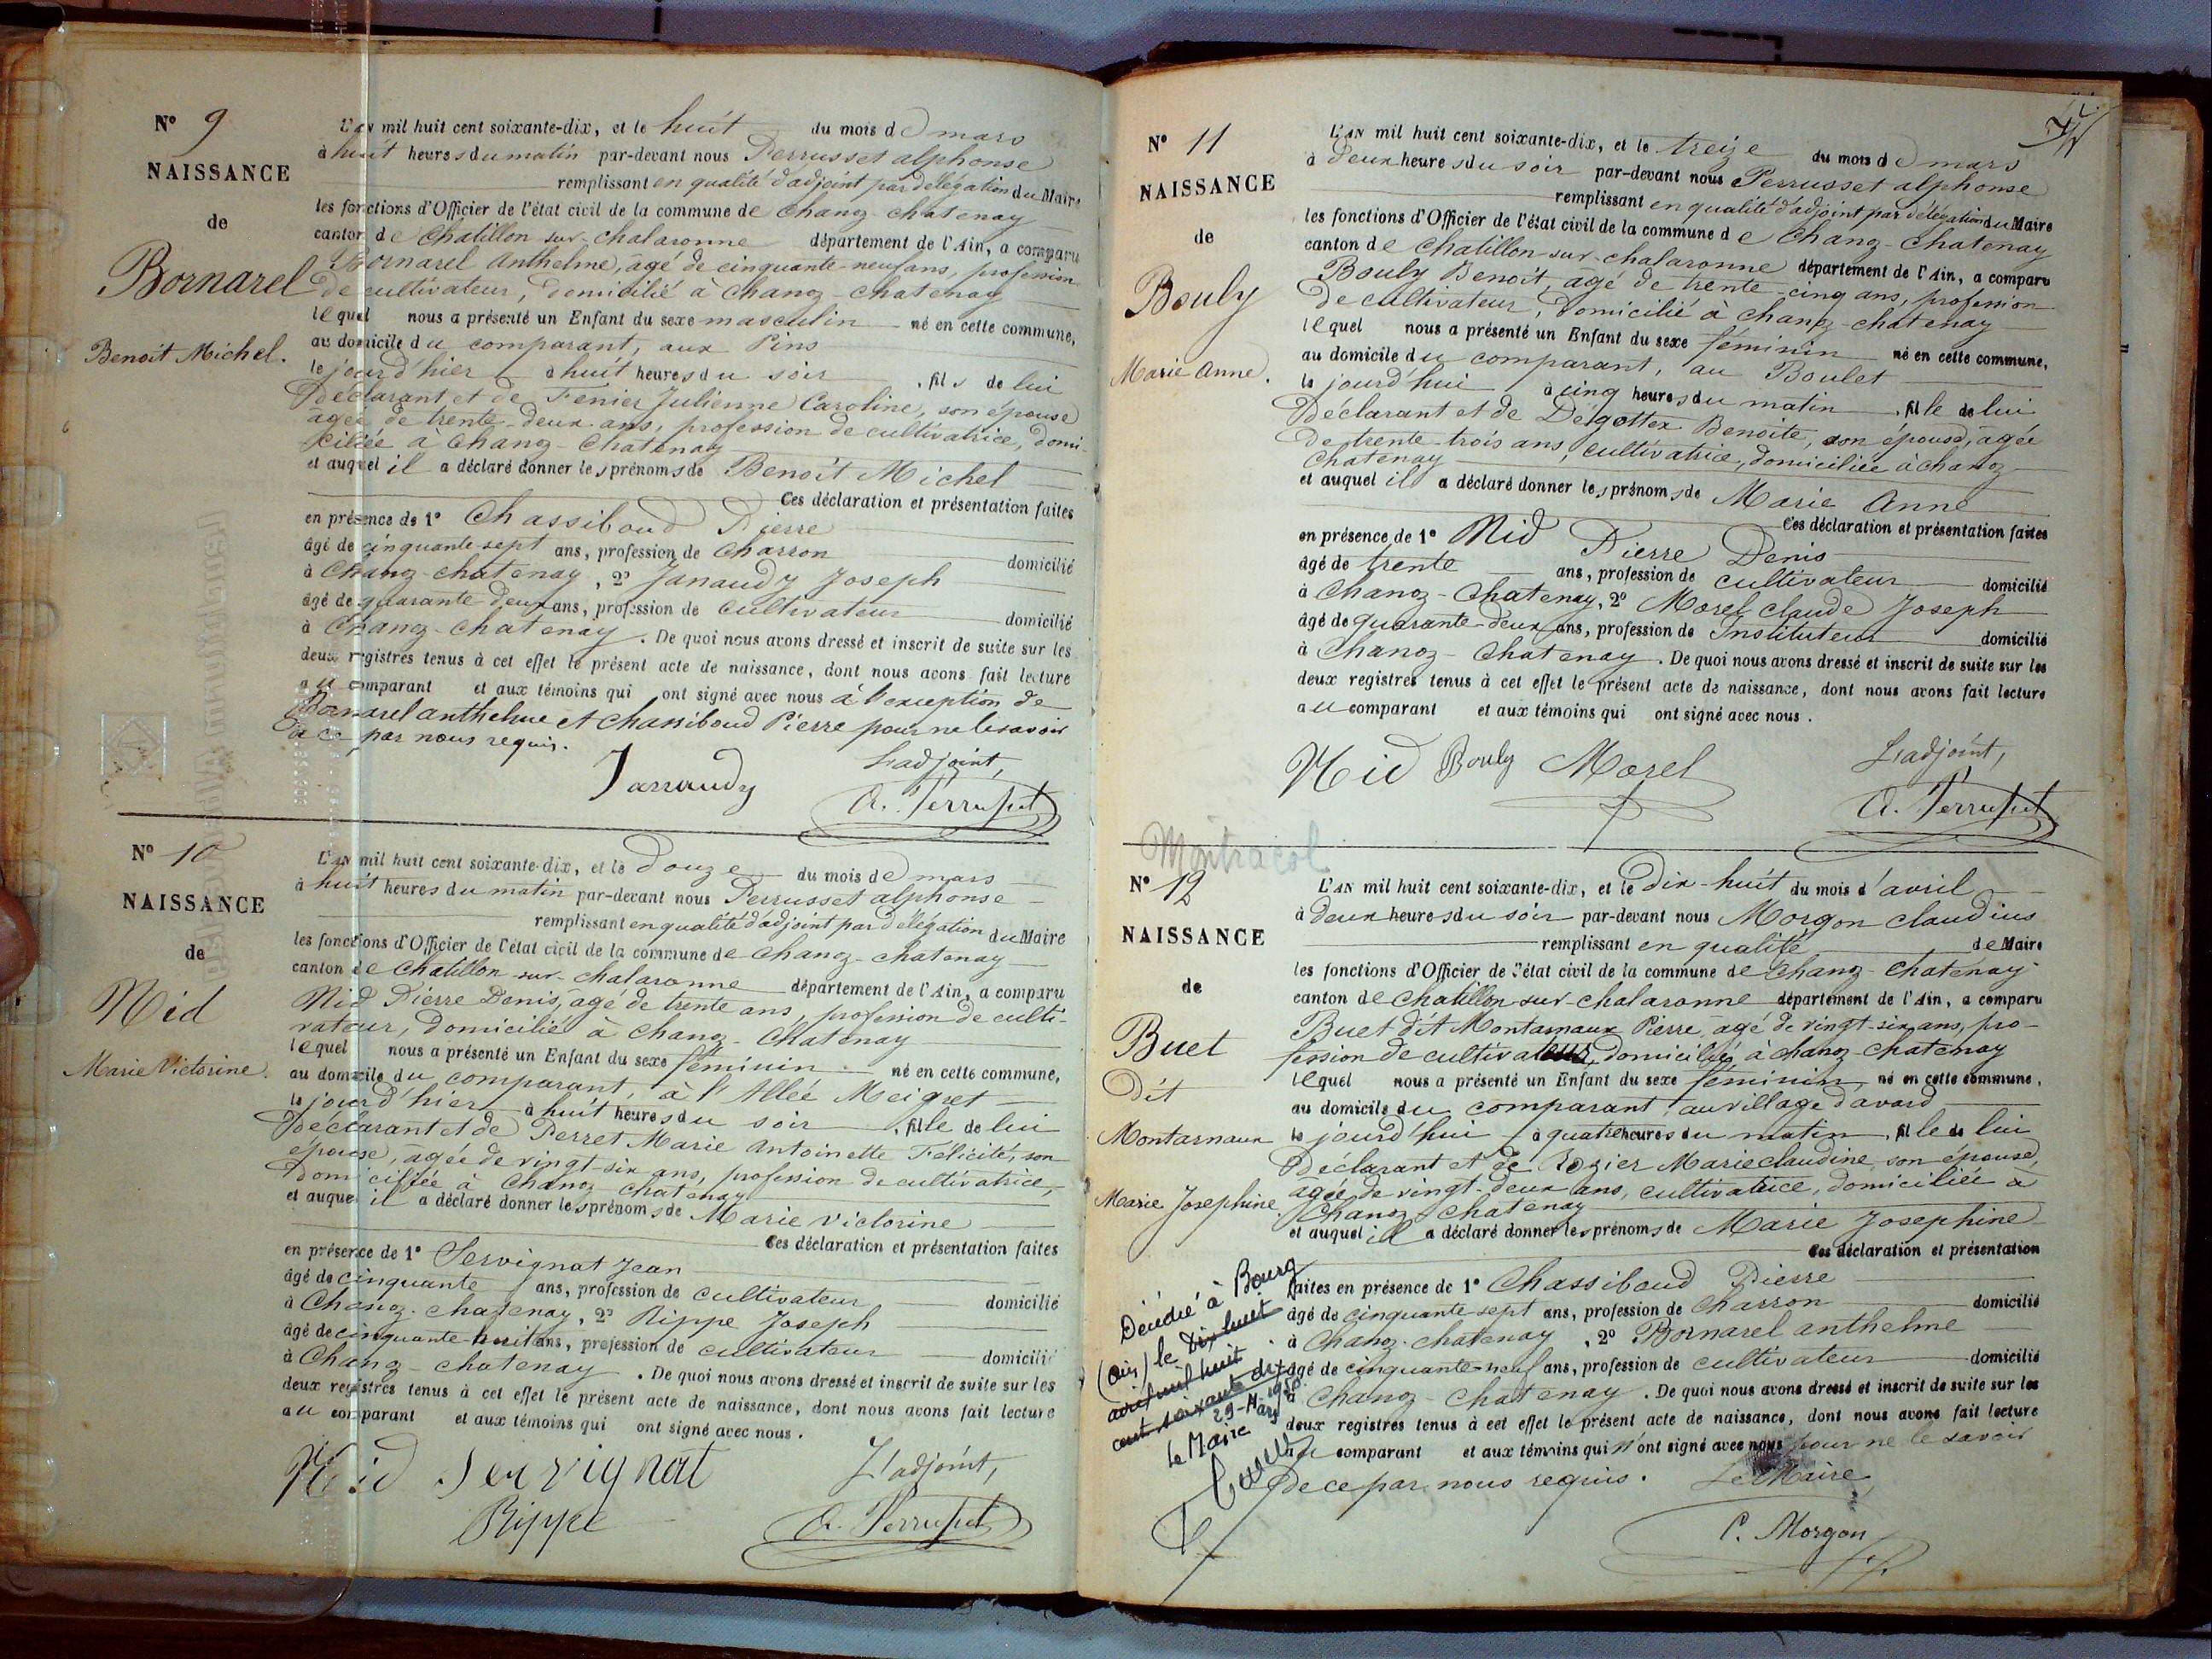 N° 9
NAISSANCE
de
Bornarel
Benoit Michel.
L'AN mil huit cent soixante-dix, et le huit du mois de mars
à huit heures du matin par-devant nous Perrusset alphonse
remplissant en qualité d'adjoint par délégation du Maire
les fonctions d'Officier de l'état civil de la commune de Chanoz-Chatenay
canton de Chatillon-sur-chalaronne département de l'Ain, a comparu
Bornarel Anthelme, âgé de cinquante-neuf ans, profession
de cultivateur, domicilié à Chanoz-Chatenay
lequel nous a présenté un Enfant du sexe masculin né en cette commune,
au domicile du comparant, aux Pins
le jour d'hier à huit heures du soir, fils de lui
Déclarant et de Fenier Julienne Caroline, son épouse
âgée de trente-deux ans, profession de cultivatrice, domi-
ciliée à Chanoz-Chatenay
et auquel il a déclaré donner les prénoms de Benoit Michel
Ces déclaration et présentation faites
en présence de 1° Chassiboud Pierre
âgé de cinquante sept ans, profession de Charron domicilié
à Chanoz-chatenay, 2° Janaudy Joseph
âgé de quarante deux ans, profession de cultivateur domicilié
à Chanoz-chatenay. De quoi nous avons dressé et inscrit de suite sur les
deux registres tenus à cet effet le présent acte de naissance, dont nous avons fait lecture
au comparant et aux témoins qui ont signé avec nous à l'exception de
Bornarel anthelme et Chassiboud Pierre pour ne le savoir
de ce par nous requis.
L'adjoint,
Janaudy
A. Perrusset
N° 10
NAISSANCE
de
Nid
Marie Victorine.
L'AN mil huit cent soixante-dix, et le Douze du mois de mars
à huit heures du matin par-devant nous Perrusset alphonse
remplissant en qualité d'adjoint par délégation du Maire
les fonctions d'Officier de l'état civil de la commune de Chanoz-chatenay
canton de Chatillon-sur-chalaronne département de l'Ain, a comparu
Nid Pierre Denis, âgé de trente ans, profession de culti-
vateur, domicilié à Chanoz-Chatenay
lequel nous a présenté un Enfant du sexe féminin né en cette commune,
au domicile du comparant, à l'Allée Meigret
le jour d'hier à huit heures du soir, fille de lui
Déclarant et de Perret Marie Antoinette Félicité, son
épouse, agée de vingt-six ans, profession de cultivatrice,
domiciliée à Chanoz-chatenay
et auquel il a déclaré donner les prénoms de Marie Victorine
Ces déclaration et présentation faites
en présence de 1° Servignat Jean
âgé de cinquante ans, profession de cultivateur domicilié
à Chanoz-chatenay, 2° Rippe Joseph
âgé de cinquante-huit ans, profession de cultivateur domicilié
à Chanoz-chatenay. De quoi nous avons dressé et inscrit de suite sur les
deux registres tenus à cet effet le présent acte de naissance, dont nous avons fait lecture
au comparant et aux témoins qui ont signé avec nous.
Nid Servignat L'adjoint,
Rippe A. Perrusset
N° 11
NAISSANCE
de
Bouly
Marie Anne.
L'AN mil huit cent soixante-dix, et le treize du mois de mars
à Deux heures du soir par-devant nous Perrusset alphonse
remplissant en qualité d'adjoint par délégation du Maire
les fonctions d'Officier de l'état civil de la commune de Chanoz-Chatenay
canton de Chatillon-sur-chalaronne département de l'Ain, a comparu
Bouly Benoit, âgé de trente-cinq ans, profession
De cultivateur, domicilié à Chanoz-chatenay
lequel nous a présenté un Enfant du sexe féminin né en cette commune,
au domicile du comparant, au Boulet
le jourd'hui à cinq heures du matin, fille de lui
Déclarant et de Dégottex Benoite, son épouse, âgée
De trente-trois ans, cultivatrice, domiciliée à chanoz-
Chatenay
et auquel il a déclaré donner les prénoms de Marie Anne
Ces déclaration et présentation faites
en présence de 1° Nid Pierre Denis
âgé de trente ans, profession de cultivateur domicilié
à Chanoz-Chatenay, 2° Morel Claude Joseph
âgé de quarante-deux ans, profession de Instituteur domicilié
à Chanoz-Chatenay. De quoi nous avons dressé et inscrit de suite sur les
deux registres tenus à cet effet le présent acte de naissance, dont nous avons fait lecture
au comparant et aux témoins qui ont signé avec nous.
Nid Bouly Morel L'adjoint,
A. Perrusset
Montracol
N° 12
NAISSANCE
de
Buet
Dit
Montarnaux
Marie Josephine.
L'AN mil huit cent soixante-dix, et le Dix-huit du mois d'avril
à Deux heures du soir par-devant nous Morgon Claudius
remplissant en qualité de Maire
les fonctions d'Officier de l'état civil de la commune de Chanoz-Chatenay
canton de Chatillon-sur-chalaronne département de l'Ain, a comparu
Buet dit Montarnaux Pierre, âgé de vingt-six ans, pro-
fession de cultivateur, domicilié à chanoz-chatenay
lequel nous a présenté un Enfant du sexe féminin né en cette commune,
au domicile du comparant, au village d'avard
le jourd'hui à quatre heures du matin, fille de lui
Déclarant et de Rozier Marie claudine son épouse,
agée de vingt-deux ans, cultivatrice, domiciliée à
Chanoz-chatenay
et auquel il a déclaré donner les prénoms de Marie Josephine
Ces déclaration et présentation
faites en présence de 1° Chassiboud Pierre
âgé de cinquante-sept ans, profession de Charron domicilié
à Chanoz-chatenay, 2° Bornarel anthelme
âgé de cinquante-neuf ans, profession de cultivateur domicilié
à Chanoz-Chatenay. De quoi nous avons dressé et inscrit de suite sur les
deux registres tenus à cet effet le présent acte de naissance, dont nous avons fait lecture
au comparant et aux témoins qui n'ont signé avec nous pour ne le savoir
de ce par nous requis. Le Maire,
C. Morgon
Décédée à Bourg
(Ain) le Dix huit
avril mil huit
cent soixante dix
29-Mars 1950.
Le Maire